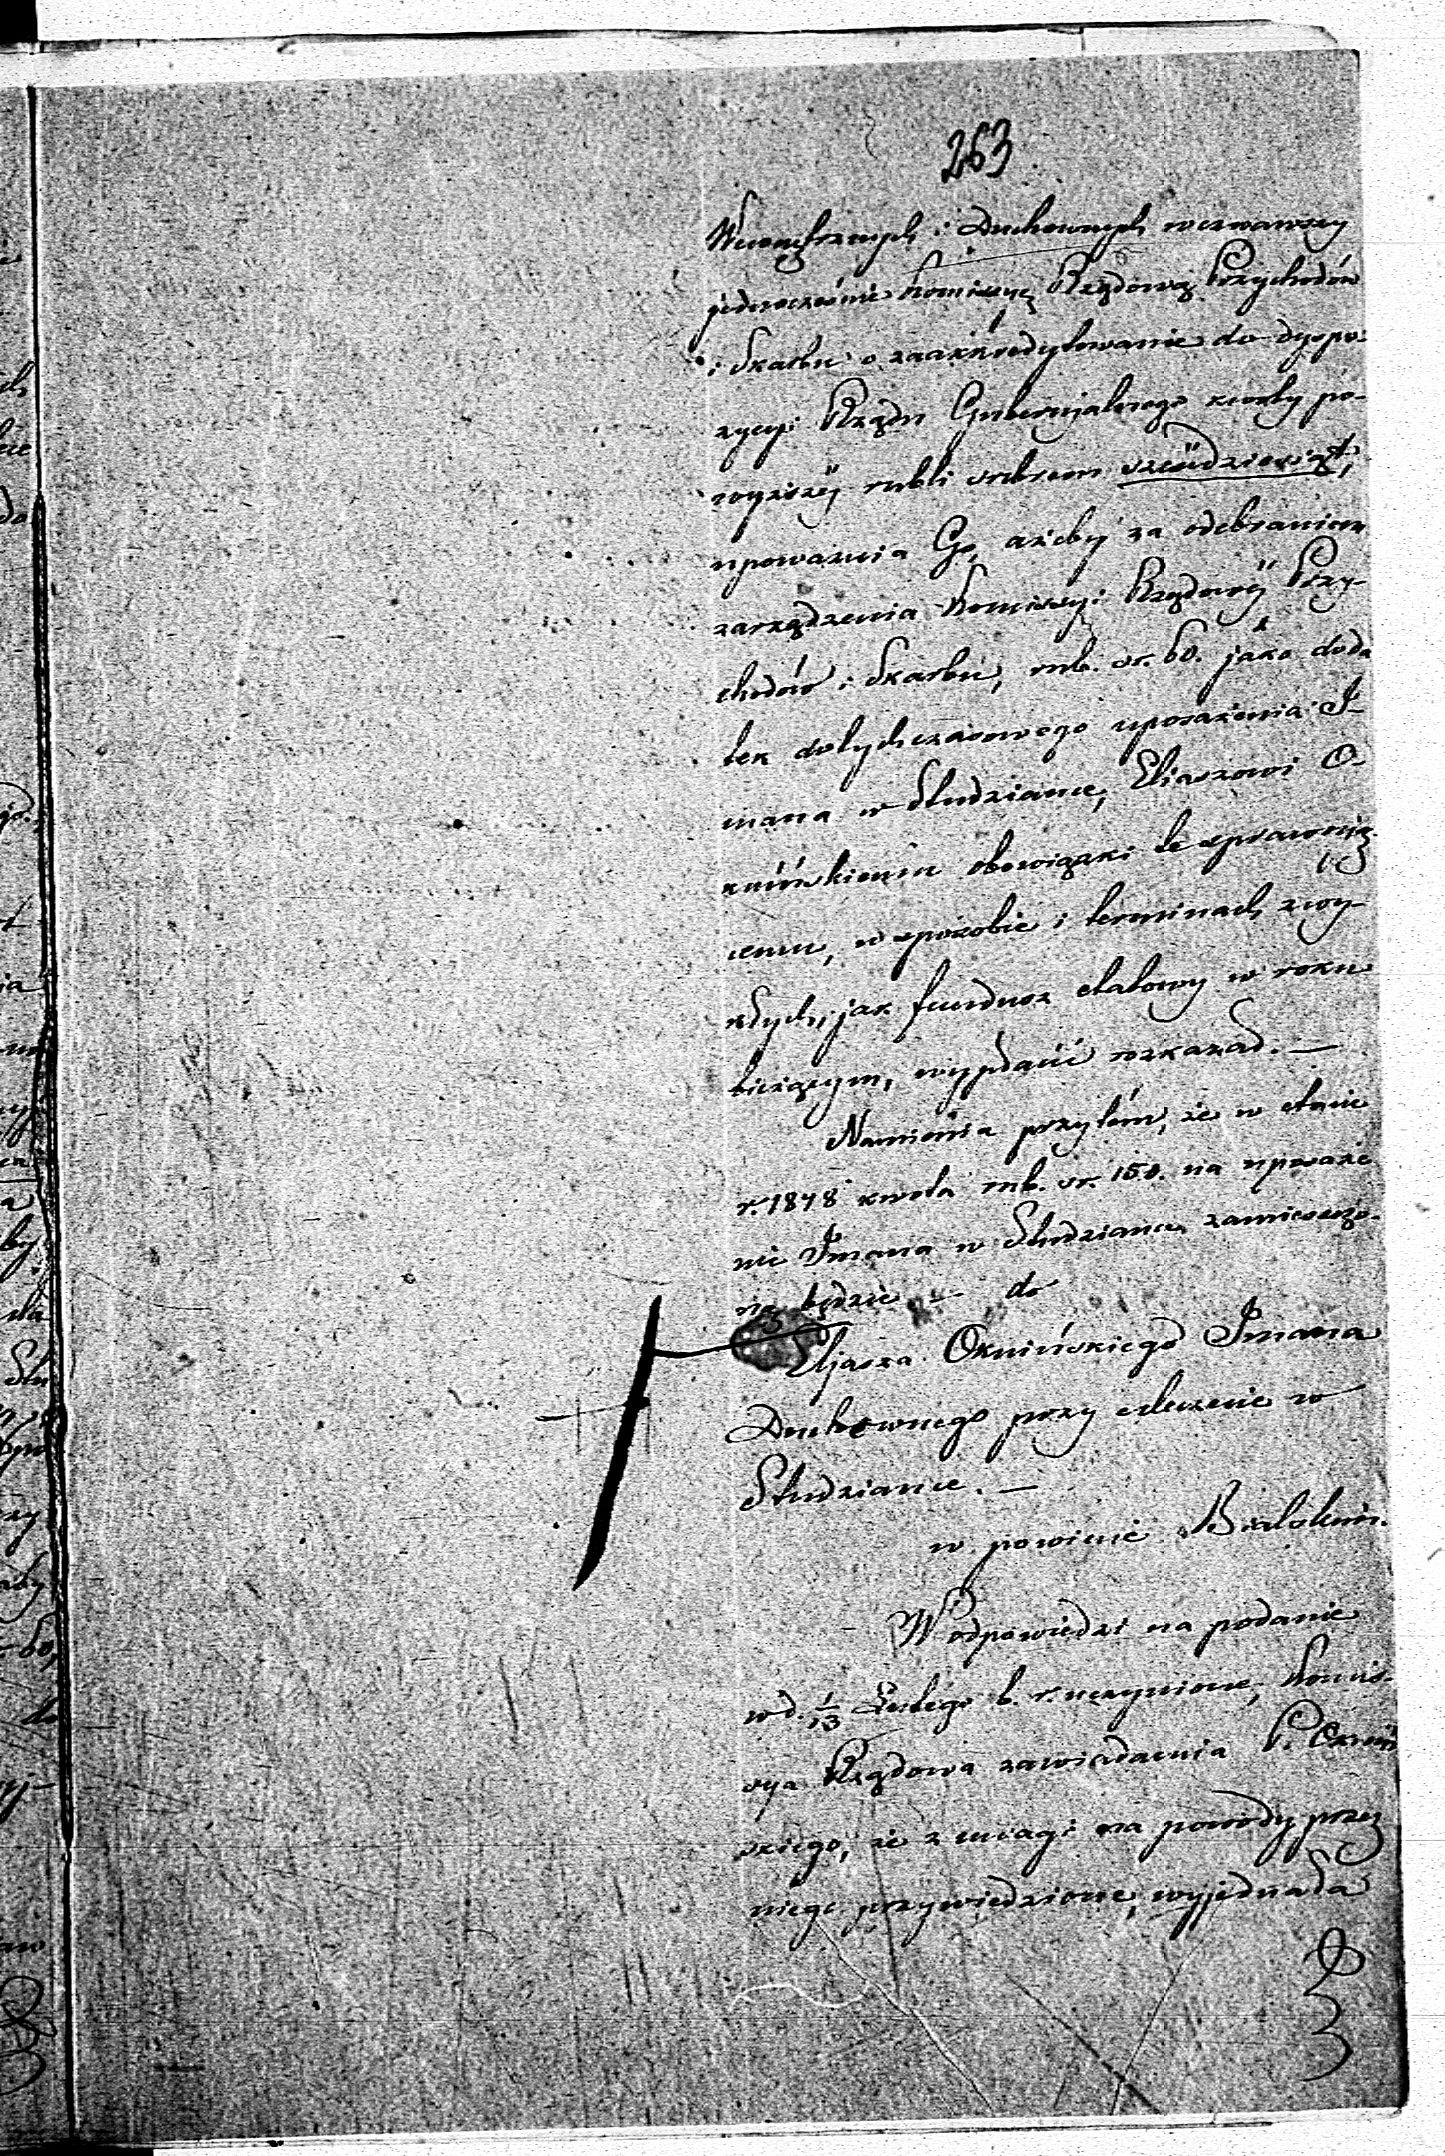 263
Wewnętrznych i Duchownych wezwawszy
jednocześnie Kommissyę Rządową Przychodów
i Skarbu o zaakkredytowanie do dyspo-
zycyi Rządu Gubernjalnego kwoty po-
wyższéj rubli srebrem sześćdziesiąt,
upoważnia Go, ażeby za odebraniem
zarządzenia Kommissyi Rządowéj Przy-
chodów i Skarbu, rub. sr. 60. jako doda
tek dotychczasowego uposażenia I-
mana w Studziance, Eliaszowi O-
knińskiemu obowiązki te sprawują-
cemu, w sposobie i terminach zwy-
kłych, jak fundusz etatowy w roku
bieżącym, wypłacić rozkazał. —
Namienia przytém, że w etacie
r. 1848 kwota rub. sr. 150. na uposaże
nie Imana w Studziance zamieszczo-
ną będzie — do
Eljasza Oknińskiego Imana
Duchownego przy meczecie w
Studziance. —
w powiecie Bialskim.
W odpowiedzi na podanie
w d. 1/13 Lutego b. r. uczynione, Kommis-
sya Rządowa zawiadamia P. Okniń
skiego, że z uwagi na powody przez
niego przywiedzione, wyjednała